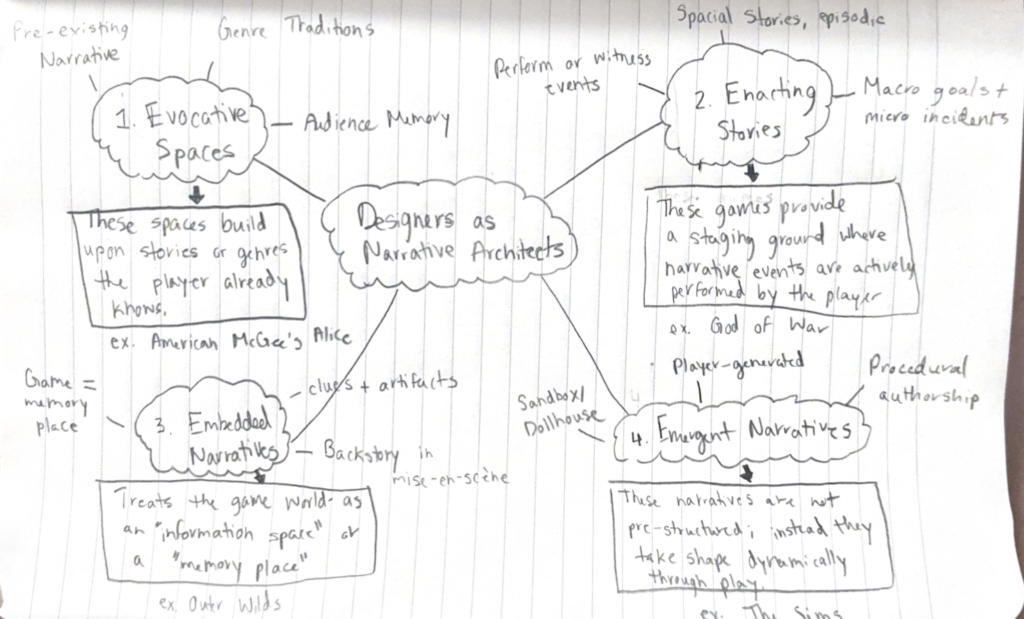 Pre-existing
Narrative
Genre Traditions
1. Evocative
Spaces
Audience Memory
These spaces build
upon stories or genres
the player already
knows.
ex. American McGee's Alice
Spacial Stories, episodic
Perform or witness
events
2. Enacting
Stories
Macro goals +
micro incidents
These games provide
a staging ground where
narrative events are actively
performed by the player
ex. God of War
Designers as
Narrative Architects
Game =
memory
place
clues + artifacts
3. Embedded
Narratives
Backstory in
mise-en-scène
Treats the game world as
an "information space" or
a "memory place"
ex. Outer Wilds
Player-generated
Procedural
authorship
Sandbox/
Dollhouse
4. Emergent Narratives
These narratives are not
pre-structured; instead they
take shape dynamically
through play
ex. The Sims